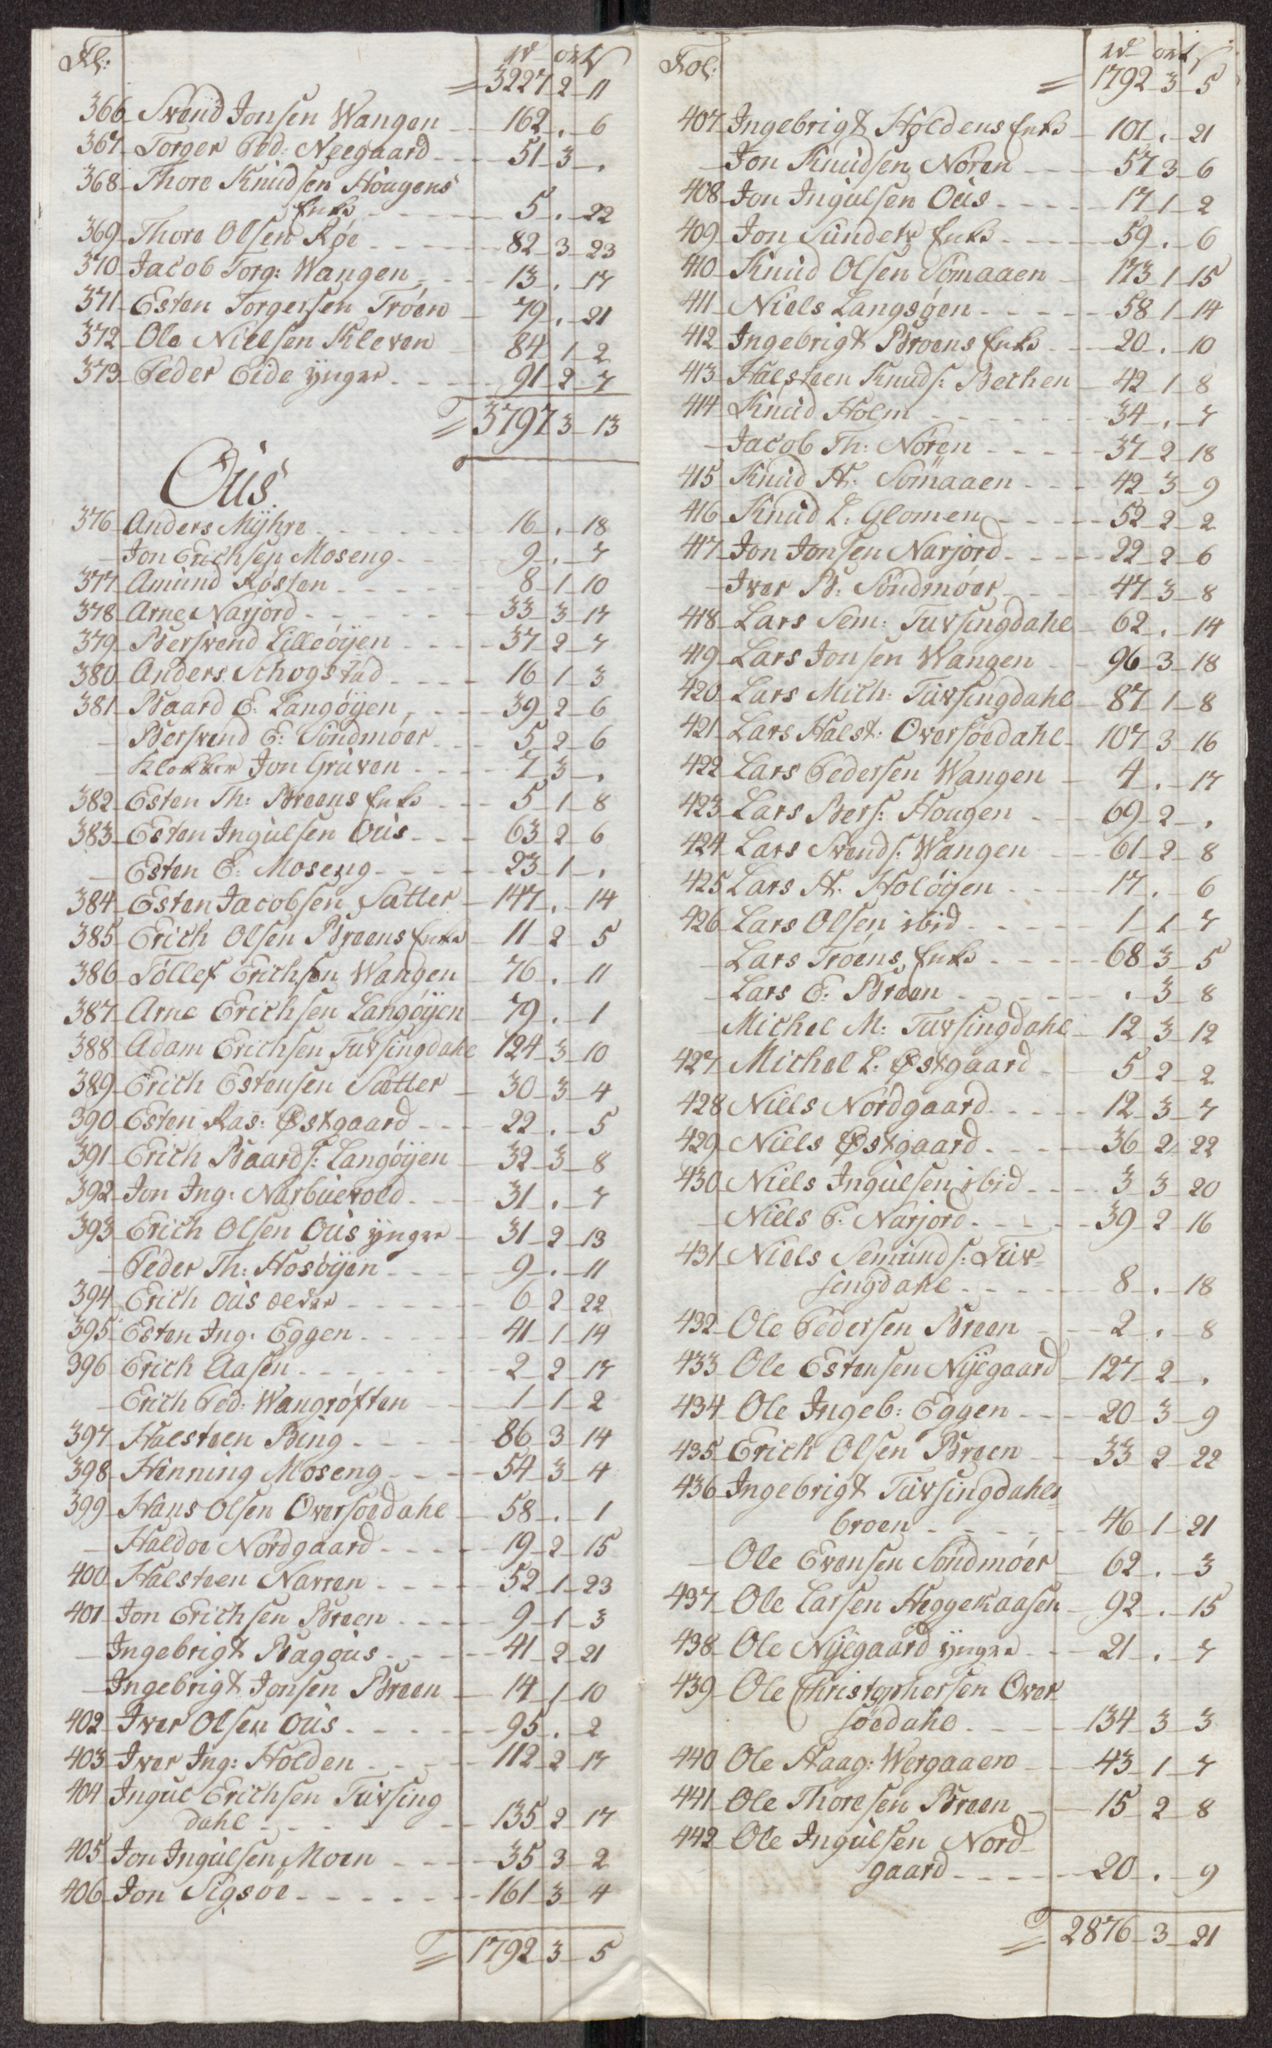 Fol: rd ort s
3227 2 11
366 Svend Jonsen Wangen 162 . 6
367 Torger Ped: Neegaard 51 3 .
368 Thore Knudsen Hougens
Enke 5 . 22
369 Thore Olsen Røe 82 3 23
370 Jacob Torg: Wangen 13 . 17
371 Esten Torgersen Trøen 79 . 21
372 Ole Nielsen Kleven 84 1 2
373 Peder Eide ÿnger 91 2 7
3797 3 13
Ous
376 Anders Mÿhre 16 . 18
Jon Erichsen Moseng 9 . 7
377 Amund Røsten 8 1 10
378 Arne Narjord 33 3 17
379 Bersvend Lilleøÿen 37 2 7
380 Anders Schogstad 16 1 3
381 Baard E: Langøÿen 39 2 6
Bersvend E: Søndmøer 5 2 6
Klokker Jon Gruven 7 3 .
382 Esten Th: Breens Enke 5 1 8
383 Esten Ingulsen Ous 63 2 6
Esten E: Moseng 23 1 .
384 Esten Jacobsen Sætter 147 . 14
385 Erich Olsen Breens Enke 11 2 5
386 Tollef Erichsen Wangen 76 . 11
387 Arne Erichsen Langøÿen 79 . 1
388 Adam Erichsen Tufsingdahl 124 3 10
389 Erich Estensen Sætter 30 3 4
390 Esten Ras: Østgaard 22 . 5
391 Erich Baards: Langøÿen 32 3 8
392 Jon Ing: Narbuevold 31 . 7
393 Erich Olsen Ous ÿnger 31 2 13
Peder Th: Hosøÿen 9 . 11
394 Erich Ous ælder 6 2 22
395 Esten Ing: Eggen 41 1 14
396 Erich Aasen 2 2 17
Erich Ped: Wangrøften 1 1 2
397 Halsteen Bing 86 3 14
398 Henning Moseng 54 3 4
399 Hans Olsen Oversoedahl 58 . 1
Haldoe Nordgaard 19 2 15
400 Halsteen Narren 52 1 23
401 Jon Erichsen Breen 9 1 3
Ingebrigt Baggus 41 2 21
Ingebrigt Jonsen Breen 14 1 10
402 Iver Olsen Ous 95 . 2
403 Iver Ing: Holden 112 2 17
404 Ingul Erichsen Tufsing
dahl 135 2 17
405 Jon Ingulsen Moen 35 3 2
406 Jon Sigsøe 161 3 4
1792 3 5
Fol: rd ort s
1792 3 5
407 Ingebrigt Høldens Enke 101 . 21
Jon Knudsen Noren 57 3 6
408 Jon Ingulsen Ous 17 1 2
409 Jon Sundets Enke 59 . 6
410 Knud Olsen Sømaaen 173 1 15
411 Niels Langsøen 58 1 14
412 Ingebrigt Broens Enke 20 . 10
413 Halsteen Knuds: Bechen 42 1 8
414 Knud Holm 34 . 7
Jacob Th: Noren 37 2 18
415 Knud H: Sømaaen 42 3 9
416 Knud L: Glomen 52 2 2
417 Jon Jonsen Narjord 22 2 6
Iver B: Søndmøer 47 3 8
418 Lars Sem: Tufsingdahl 62 . 14
419 Lars Jonsen Wangen 96 3 18
420 Lars Mich: Tufsingdahl 87 1 8
421 Lars Halst: Oversoedahl 107 3 16
422 Lars Pedersen Wangen 4 . 17
423 Lars Bers: Hougen 69 2 .
424 Lars Svends: Wangen 61 2 8
425 Lars H: Holøÿen 17 . 6
426 Lars Olsen ibid 1 1 7
Lars Trøens Enke 68 3 5
Lars E: Breen . 3 8
Michel M: Tufsingdahl 12 3 12
427 Michel L: Østgaard 5 2 2
428 Niels Nordgaard 12 3 7
429 Niels Østgaard 36 2 22
430 Niels Ingulsen ibid 3 3 20
Niels P: Narjord 39 2 16
431 Niels Semunds: Tuv-
singdahl 8 . 18
432 Ole Pedersen Breen 2 . 8
433 Ole Estensen Nÿegaard 127 2 .
434 Ole Ingeb: Eggen 20 3 9
435 Erich Olsen Breen 33 2 22
436 Ingebrigt Tufsingdahls
broen 46 1 21
Ole Evensen Søndmøer 62 . 3
437 Ole Larsen Heggekaasen 92 . 15
438 Ole Nÿegaard ÿngre 21 . 7
439 Ole Christophersen Over
soedahl 134 3 3
440 Ole Haag: Wergaaen 43 1 7
441 Ole Thoresen Breen 15 2 8
442 Ole Ingulsen Nord
gaard 20 . 9
2876 3 21